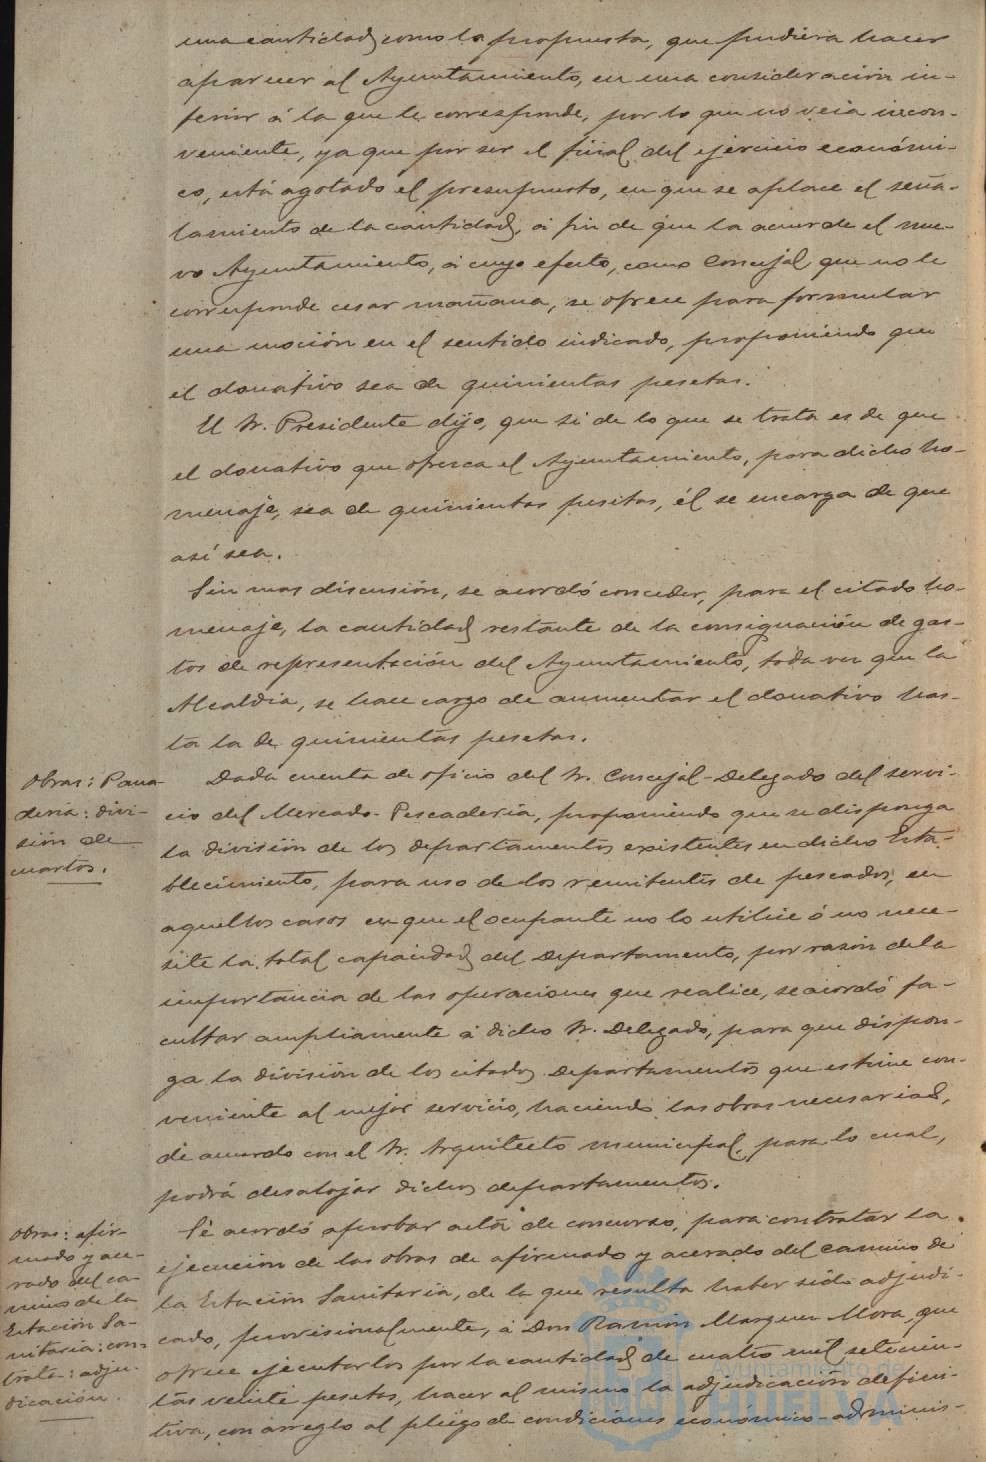 una cantidad como la propuesta, que pudiera hacer
aparecer al Ayuntamiento, en una consideración in-
ferior á la que le corresponde, por lo que no veia incon-
veniente, ya que por ser el final del ejercicio económi-
co, está agotado el presupuesto, en que se aplace el seña-
lamiento de la cantidad, á fin de que la acuerde el nue-
vo Ayuntamiento, á cuyo efecto, como Concejal que no le
corresponde cesar mañana, se ofrece para formular
una moción en el sentido indicado, proponiendo que
el donativo sea de quinientas pesetas.
El Sr. Presidente dijo, que si de lo que se trata es de que
el donativo que ofrezca el Ayuntamiento, para dicho ho-
menaje, sea de quinientas pesetas, él se encarga de que
así sea.
Sin mas discusión, se acordó conceder, para el citado ho-
menaje, la cantidad restante de la consignación de gas-
tos de representación del Ayuntamiento, toda vez que la
Alcaldia, se hace cargo de aumentar el donativo has-
ta la de quinientas pesetas.
Obras: Pana-
deria: divi-
sión de
cuartos.
Dada cuenta de oficio del Sr. Concejal-Delegado del servi-
cio del Mercado-Pescaderia, proponiendo que se disponga
la división de los departamentos existentes en dicho Esta-
blecimiento, para uso de los remitentes de pescados, en
aquellos casos en que el ocupante no lo utilice ó no nece-
site la total capacidad del Departamento, por razón de la
importancia de las operaciones que realice, se acordó fa-
cultar ampliamente á dicho Sr. Delegado, para que dispon-
ga la división de los citados departamentos que estime con-
veniente al mejor servicio, haciendo las obras necesarias,
de acuerdo con el Sr. Arquitecto municipal, para lo cual,
podrá desalojar dichos departamentos.
Obras: afir-
mado y ace-
rado del ca-
mino de la
Estación Sa-
nitaria: con-
trata: adju-
dicación.
Sé acordó aprobar acta de concurso, para contratar la
ejecución de las obras de afirmado y acerado del camino de
la Estación Sanitaria, de la que resulta haber sido adjudi-
cado, provisionalmente, á Don Ramón Marquez Mora, que
ofrece ejecutarlos por la cantidad de cuatro mil setecien-
tas veinte pesetas, hacer al mismo la adjudicación defini-
tiva, con arreglo al pliego de condiciones económico-adminis-
Ayuntamiento de
HUELVA